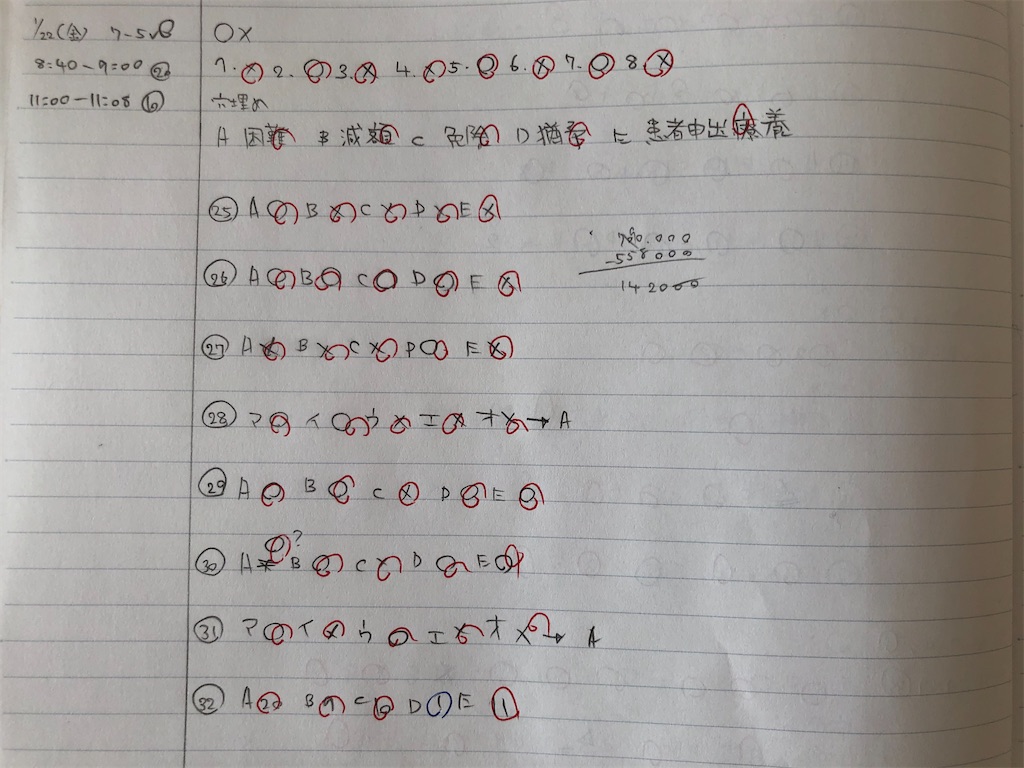 1/22(金) 7-5
8:40-9:00 ⑳
11:00-11:08 ⑥
○×
1. × 2. ○ 3. × 4. × 5. ○ 6. × 7. ○ 8 ×
穴埋め
A 困難 B 減額 C 危険 D 猶予 E 患者申出療養
㉕ A ○ B × C × D × E ×
780.000
-558000
142000
㉖ A ○ B ○ C ○ D ○ E ×
㉗ A × B × C × D ○ E ×
㉘ ア ○ イ ○ ウ × エ × オ × → A
㉙ A ○ B ○ C × D ○ E ○
㉚ A ○? B ○ C × D ○ E ○
㉛ ア ○ イ × ウ ○ エ × オ × → A
㉜ A 22 B 9 C 6 D 1 E 1